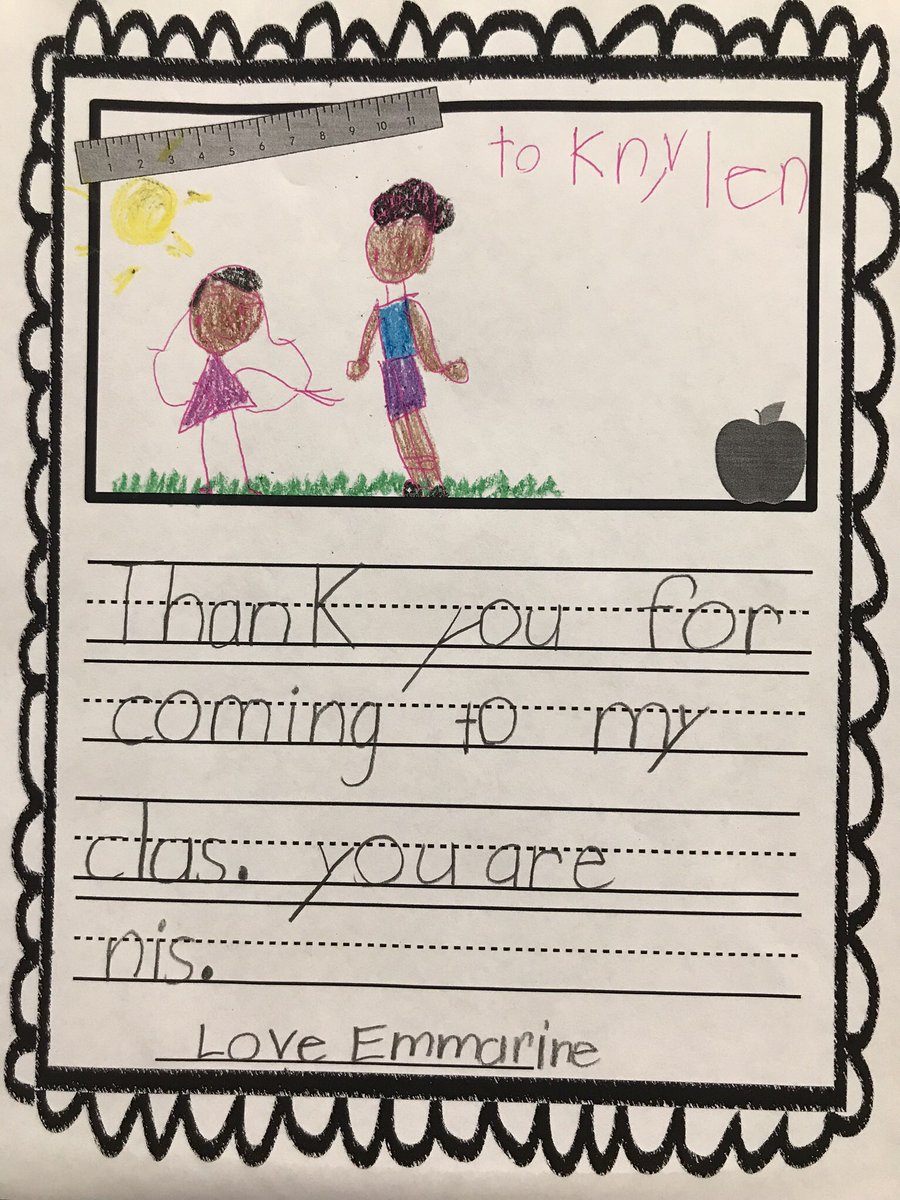 1 2 3 4 5 6 7 8 9 10 11
to Knylen
Thank you for
coming to my
clas. you are
nis.
Love Emmarine